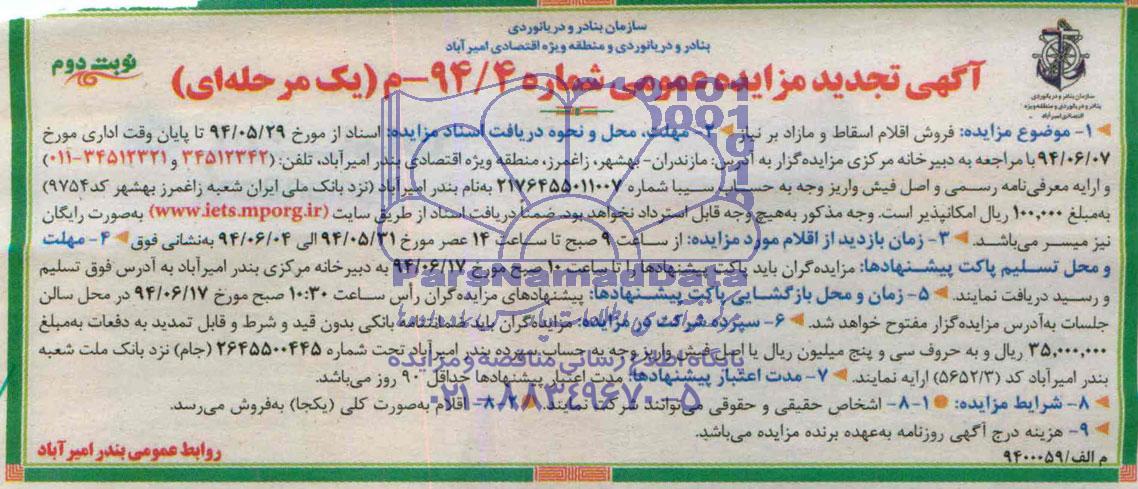 سازمان بنادر و دریانوردی
بنادر و دریانوردی و منطقه ویژه اقتصادی امیرآباد
نوبت دوم
آگهی تجدید مزایده عمومی شماره ۹۴/۴-م (یک مرحله‌ای)
سازمان بنادر و دریانوردی
بنادر و دریانوردی و منطقه ویژه
اقتصادی امیرآباد
۱- موضوع مزایده: فروش اقلام اسقاط و مازاد بر نیاز ۲- مهلت، محل و نحوه دریافت اسناد مزایده: اسناد از مورخ ۹۴/۰۵/۲۹ تا پایان وقت اداری مورخ
۹۴/۰۶/۰۷ با مراجعه به دبیرخانه مرکزی مزایده‌گزار به آدرس: مازندران- بهشهر، زاغمرز، منطقه ویژه اقتصادی بندر امیرآباد، تلفن: (۳۴۵۱۲۳۴۲ و ۳۴۵۱۲۳۲۱-۰۱۱)
و ارایه معرفی‌نامه رسمی و اصل فیش واریز وجه به حساب سیبا شماره ۲۱۷۶۴۵۵۰۱۱۰۰۷ به‌نام بندر امیرآباد (نزد بانک ملی ایران شعبه زاغمرز بهشهر کد ۹۷۵۴)
به‌مبلغ ۱۰۰,۰۰۰ ریال امکانپذیر است. وجه مذکور به‌هیچ وجه قابل استرداد نخواهد بود. ضمناً دریافت اسناد از طریق سایت (www.iets.mporg.ir) به‌صورت رایگان
نیز میسر می‌باشد. ۳- زمان بازدید از اقلام مورد مزایده: از ساعت ۹ صبح تا ساعت ۱۴ عصر مورخ ۹۴/۰۵/۳۱ الی ۹۴/۰۶/۰۴ به‌نشانی فوق ۴- مهلت
و محل تسلیم پاکت پیشنهادها: مزایده‌گران باید پاکت پیشنهادها را تا ساعت ۱۰ صبح مورخ ۹۴/۰۶/۱۷ به دبیرخانه مرکزی بندر امیرآباد به آدرس فوق تسلیم
و رسید دریافت نمایند. ۵- زمان و محل بازگشایی پاکت پیشنهادها: پیشنهادهای مزایده‌گران رأس ساعت ۱۰:۳۰ صبح مورخ ۹۴/۰۶/۱۷ در محل سالن
جلسات به‌آدرس مزایده‌گزار مفتوح خواهد شد. ۶- سپرده شرکت در مزایده: مزایده‌گران باید ضمانتنامه بانکی بدون قید و شرط و قابل تمدید به دفعات به‌مبلغ
۳۵,۰۰۰,۰۰۰ ریال و به حروف سی و پنج میلیون ریال یا اصل فیش واریز وجه به حساب سپرده بندر امیرآباد تحت شماره ۲۶۴۵۵۰۰۴۴۵ (جام) نزد بانک ملت شعبه
بندر امیرآباد کد (۵۶۵۲/۳) ارایه نمایند. ۷- مدت اعتبار پیشنهادها: مدت اعتبار پیشنهادها حداقل ۹۰ روز می‌باشد.
۸- شرایط مزایده: ۸-۱- اشخاص حقیقی و حقوقی می‌توانند شرکت نمایند. ۸-۲- اقلام به‌صورت کلی (یکجا) به‌فروش می‌رسد.
۹- هزینه درج آگهی روزنامه به‌عهده برنده مزایده می‌باشد.
م الف/۹۴۰۰۰۵۹
روابط عمومی بندر امیرآباد
ParsNamadData
پایگاه اطلاع رسانی مناقصه و مزایده
۰۲۱-۸۸۳۴۹۶۷۰-۵